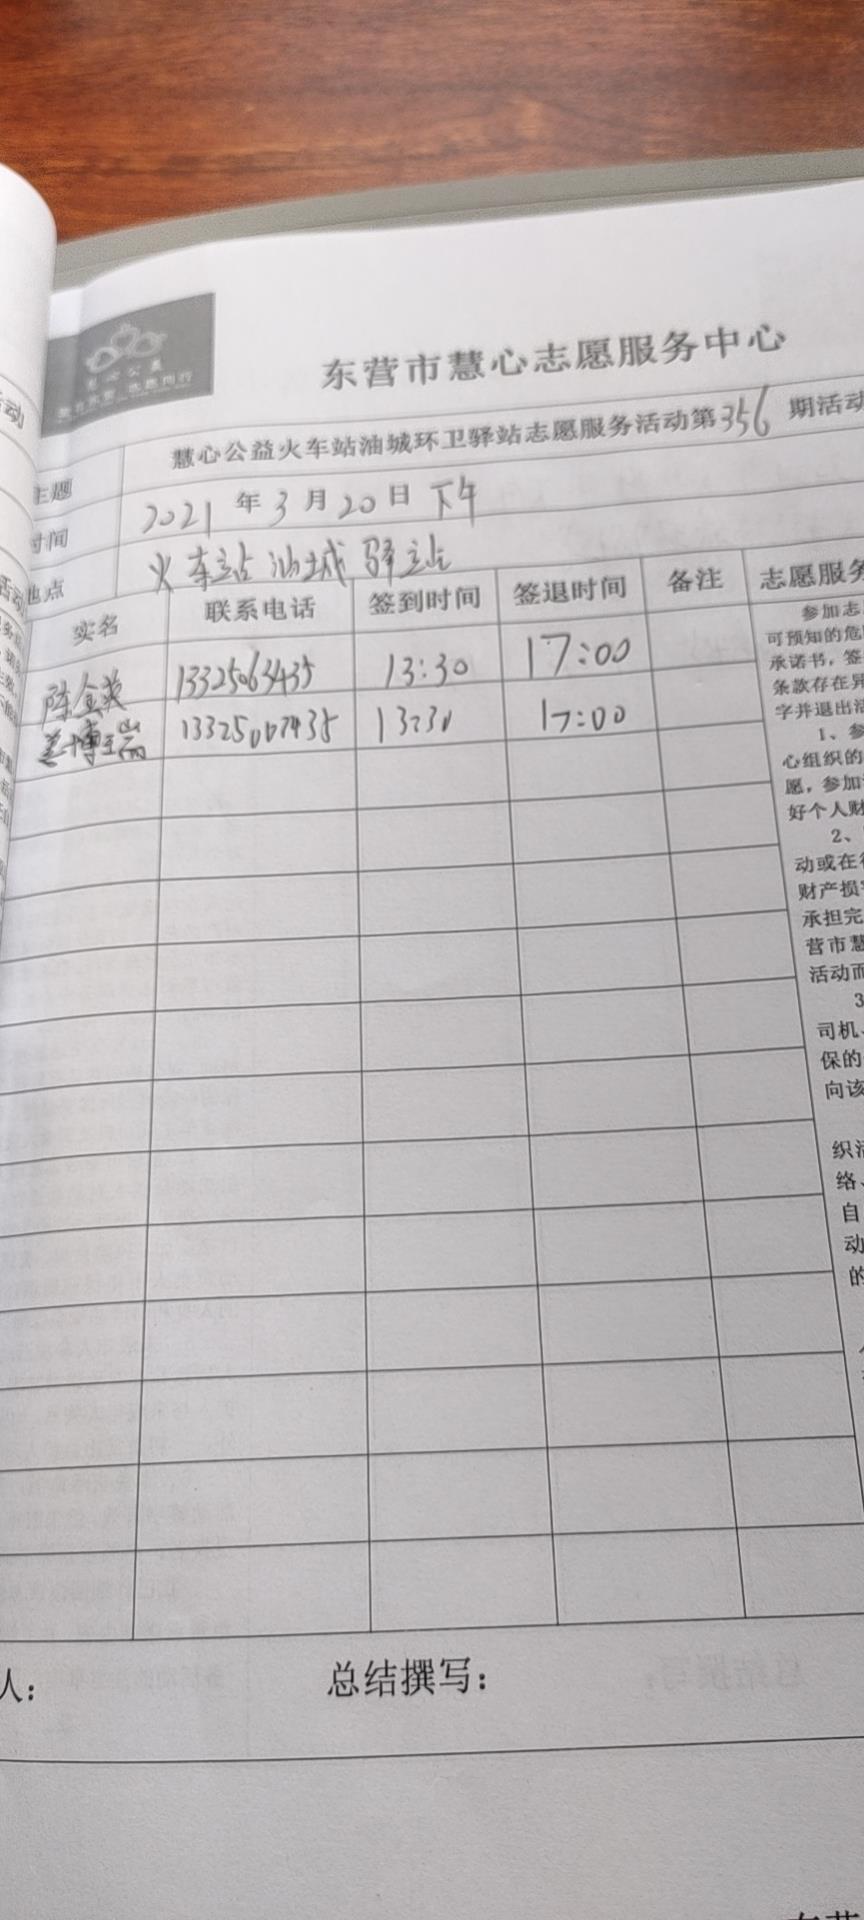 东营市慧心志愿服务中心
主题 慧心公益火车站油城环卫驿站志愿服务活动第356期活动
时间 2021年3月20日下午
地点 火车站油城驿站
实名 联系电话 签到时间 签退时间 备注 志愿服务
陈金英 13325063435 13:30 17:00
姜博瑞 13325007435 13:30 17:00
参加志
可预知的危
承诺书，签
条款存在异
字并退出活
1、参
心组织的
愿，参加
好个人财
2、
动或在
财产损
承担完
营市慧
活动而
3
司机、
保的
向该
织活
络、
自
动
的
人： 总结撰写：